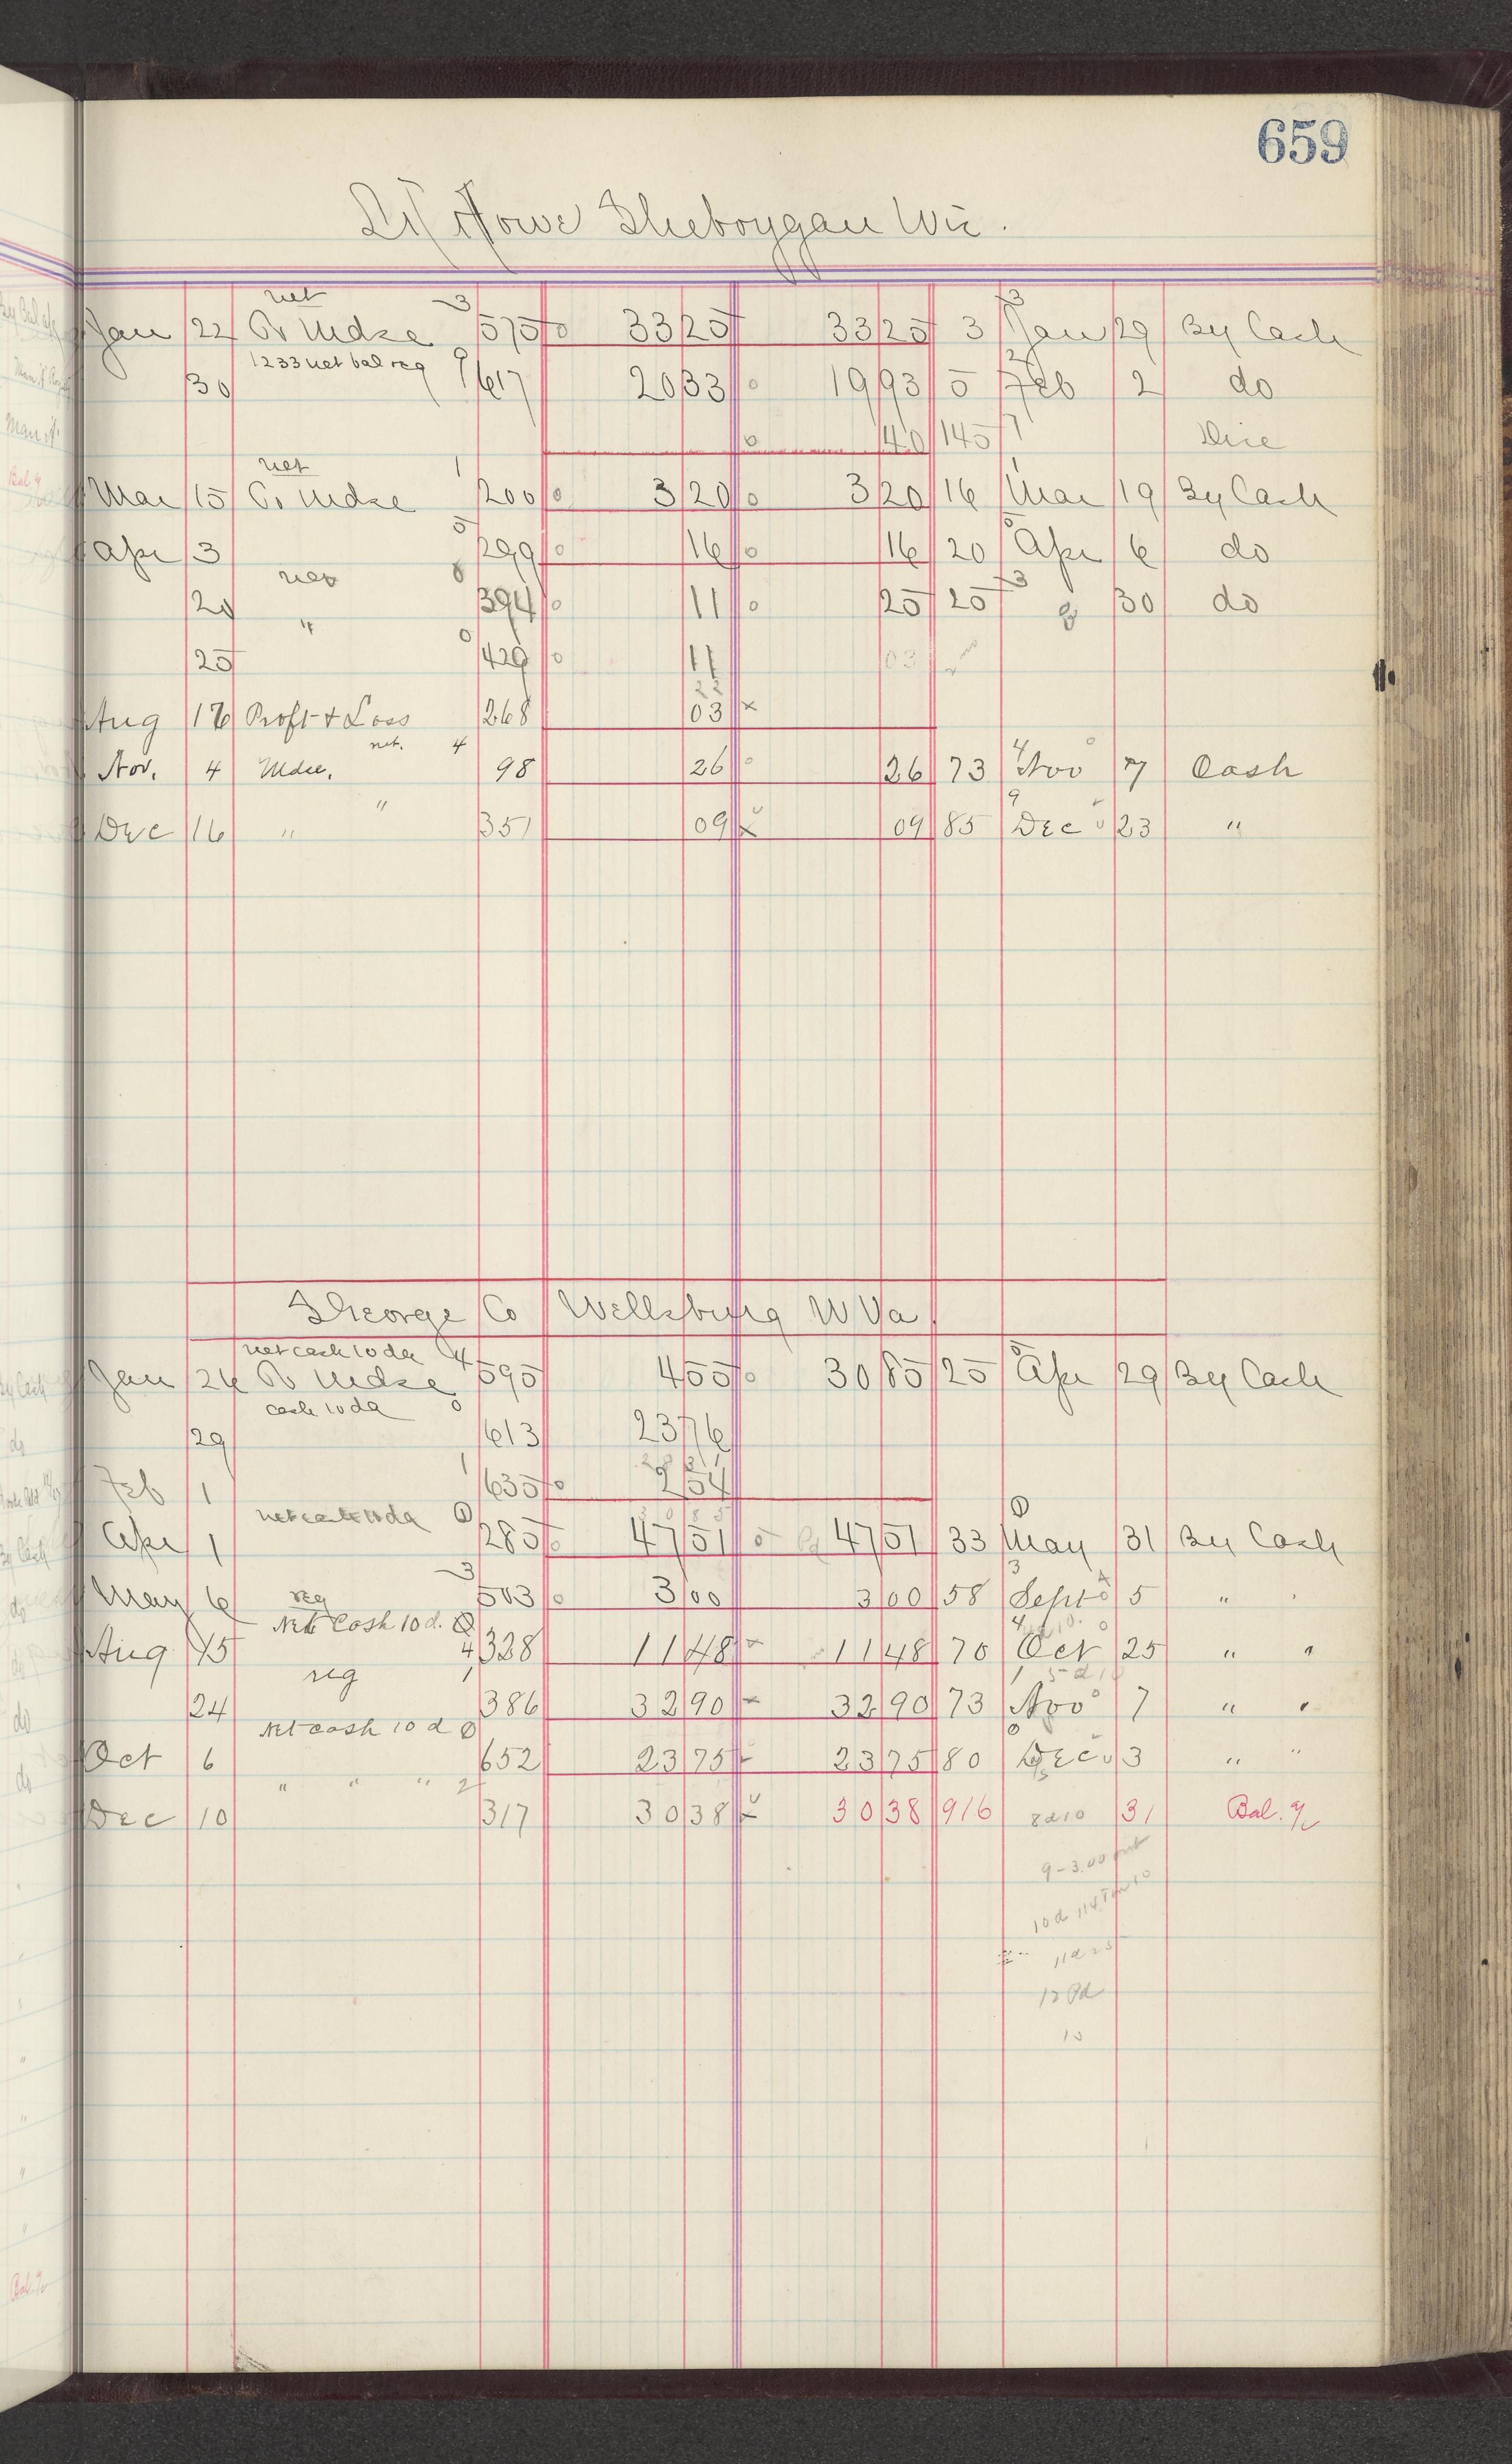 659
Howe Sheboygan Wis.
net 3 3
Jan 22 To Mdse 575 33 25 33 25 3 Jan 29 By Cash
1233 net bal reg 9 2
30 617 20 33 19 93 5 Feb 2 do
40 145 7 Disc
net 1 1
Mar 15 To Mdse 200 3 20 3 20 16 Mar 19 By Cash
5 5
Apr 3 299 16 16 20 Apr 6 do
net 8 3
20 394 11 25 25 30 do
" 0
25 429 11 03
22
Aug 16 Profit & Loss 268 03 x
net. 4 4
Nov. 4 Mdse. 98 26 26 73 Nov 7 Cash
" 9
Dec 16 " 351 09 x 09 85 Dec 23 "
George Co Wellsburg W Va.
net cash 10 da 4 5
Jan 26 To Mdse 595 4 55 30 85 25 Apr 29 By Cash
cash 10 da 0
29 613 23 76
28 31
Feb 1 1 635 2 54
net cash 10 da 1 30 85 1
Apr 1 285 47 51 Pd 47 51 33 May 31 By Cash
3 3
May 6 reg 503 3 00 3 00 58 Sept 5 "
Net Cash 10 d. 4
Aug 15 4 328 11 48 11 48 70 Oct 25 " "
reg 1 1
24 386 32 90 32 90 73 Nov 7 " "
Net cash 10 d 0 0
Oct 6 652 23 75 23 75 80 Dec 3 " "
" " " 2
Dec 10 317 30 38 30 38 916 8 d 10 31 Bal. a/c
9 - 3.00
10 d 114
11 d 25
12 Pd
10